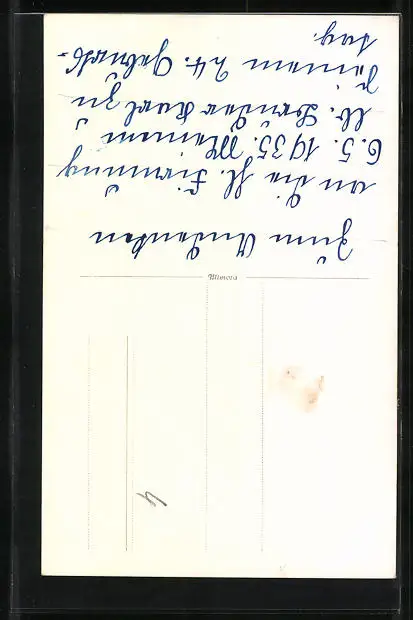 Zum Andenken
an die hl. Firmung
6. 5. 1935. Meinem
lb. Bruder Karl zu
seinem 24. Geburts-
tag.
Mimosa
4